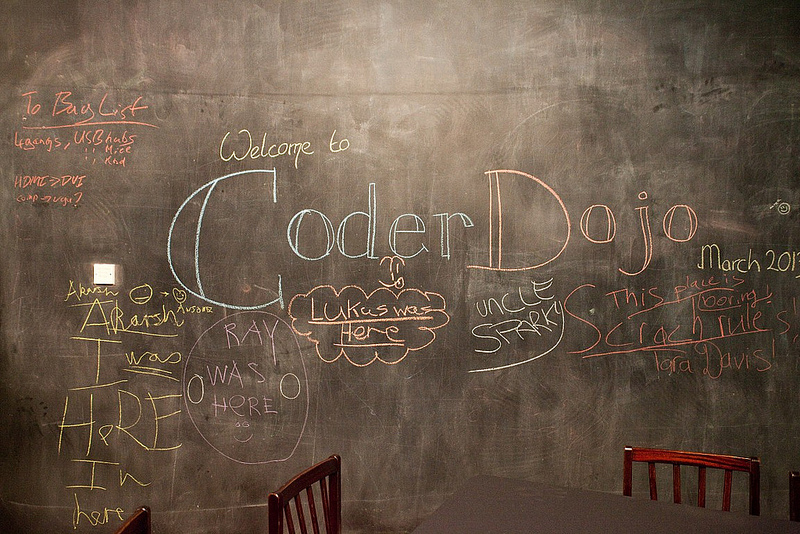 To Buy List
Legangs, USB hubs
" Mice
HDMI → DVI
Welcome to
CoderDojo
March 2013
Akarsh
Awsome
Akarsh
I was
HeRE
In
here
RAY
WAS
HeRE
Lukas was
Here
UNCLE
SPARKY
This place is
Booring!
Scrach rules
Tara Davis!